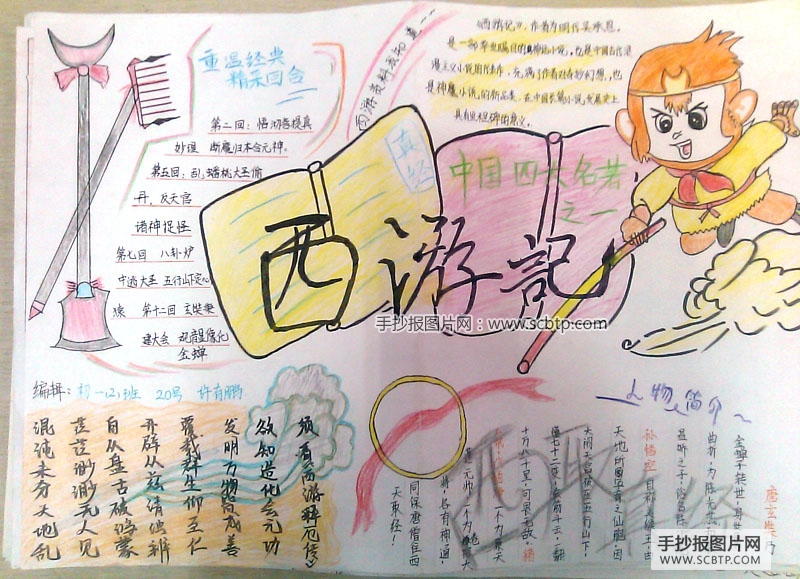 重温经典
精采回合
第二回：悟彻菩提真
妙理 断魔归本合元神。
第五回：乱蟠桃大圣偷
丹，反天宫
诸神捉怪
第七回 八卦炉
中逃大圣 五行山下定心
猿 第十二回 玄奘秉
建大会 观音显像化
金蝉
西游资料我知道
《西游记》，作者为明代吴承恩。
是一部举世瞩目的神话小说，也是中国古代浪
漫主义小说的代表作，充满了作者的奇妙幻想，也
是神魔小说的新品类，在中国长篇小说发展史上
具有里程碑的意义。
真经
中国四大名著
之一
西游記
手抄报图片网：www.scbtp.com
编辑：初一(2)班 20号 许育鹏
须看西游释厄传》
欲知造化会元功
发明万物皆成善
覆载群生仰至仁
开辟从兹清浊辨
自从盘古破鸿蒙
茫茫渺渺无人见
混沌未分天地乱
人物简介
唐玄奘
金蝉子转世
孙悟空
大闹天宫 五行山下
七十二变
十万八千里
同保唐僧往西
天取经！
西取真经
手抄报图片网
WWW.SCBTP.COM